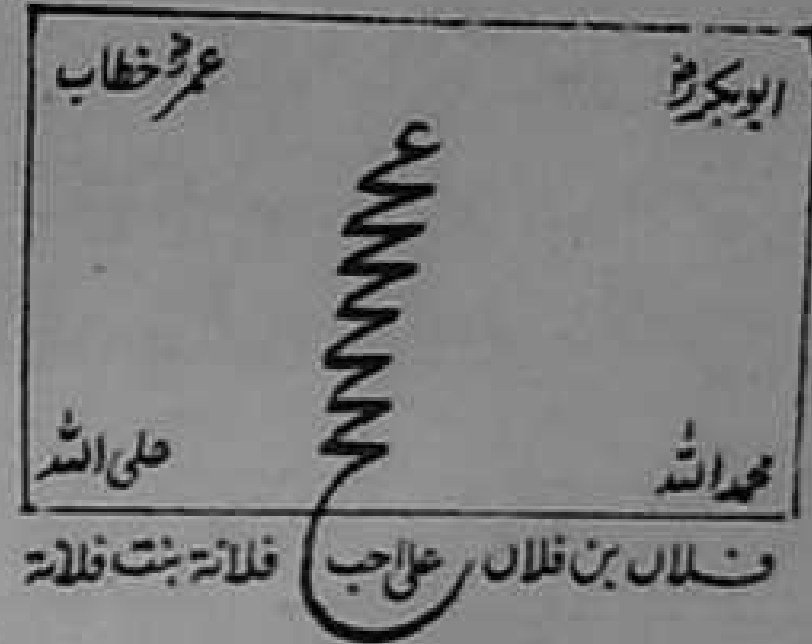 ابوبکرؓ عمرؓ خطاب
محمد اللہ علی اللہ
فلاں بن فلاں علیٰ حب فلانۃ بنت فلانۃ